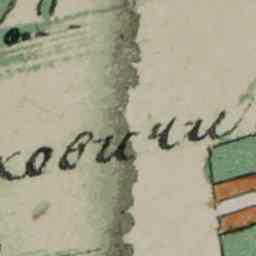 ковичи